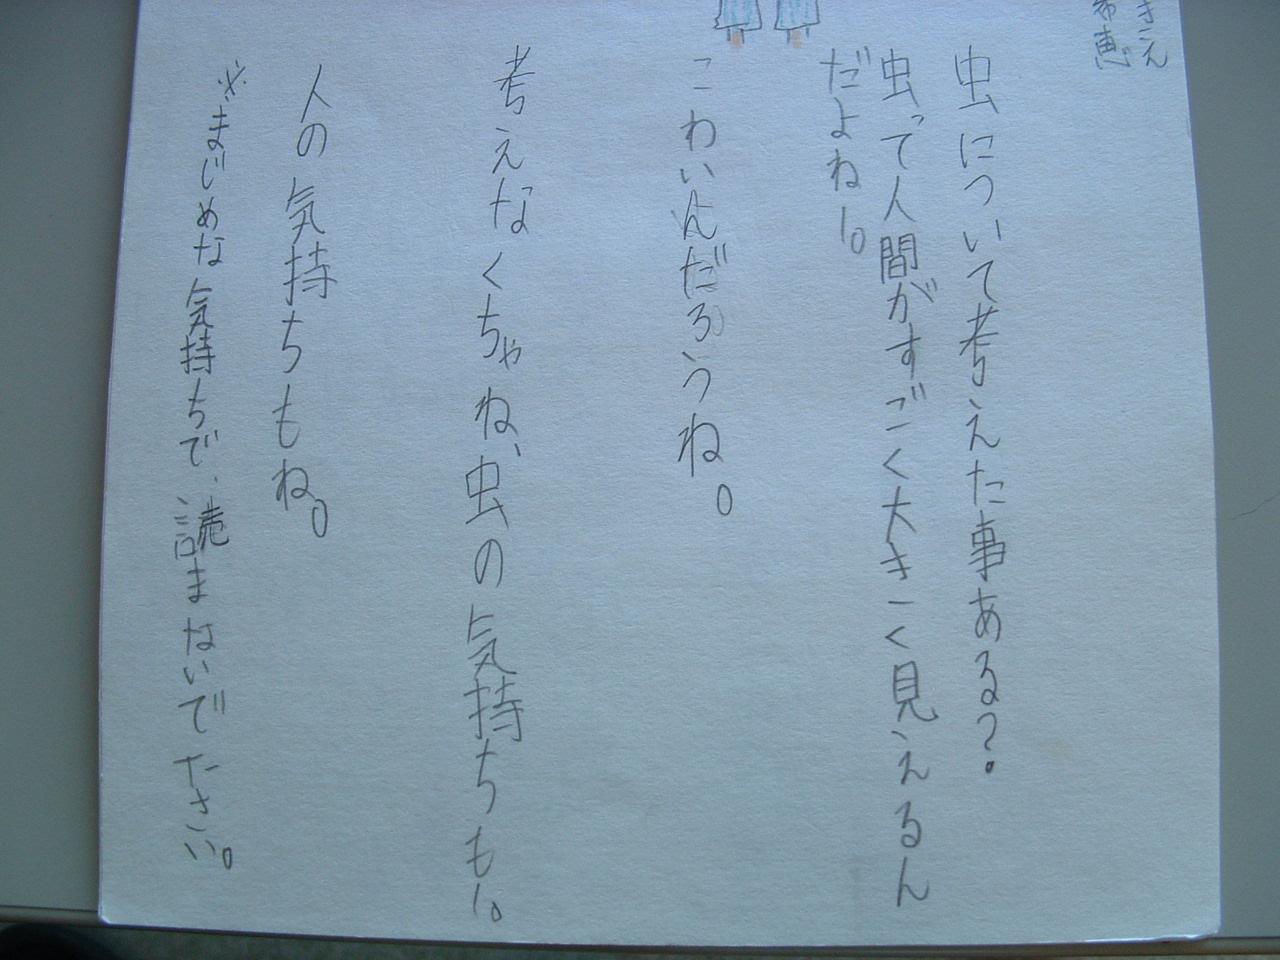 きえ
希恵
虫について考えた事ある?。
虫って人間がすごく大きーく見えるん
だよねー。
こわいんだろうね。
考えなくちゃね、虫の気持ちもー。
人の気持ちもね。
※まじめな気持ちで、読まないでたさい。